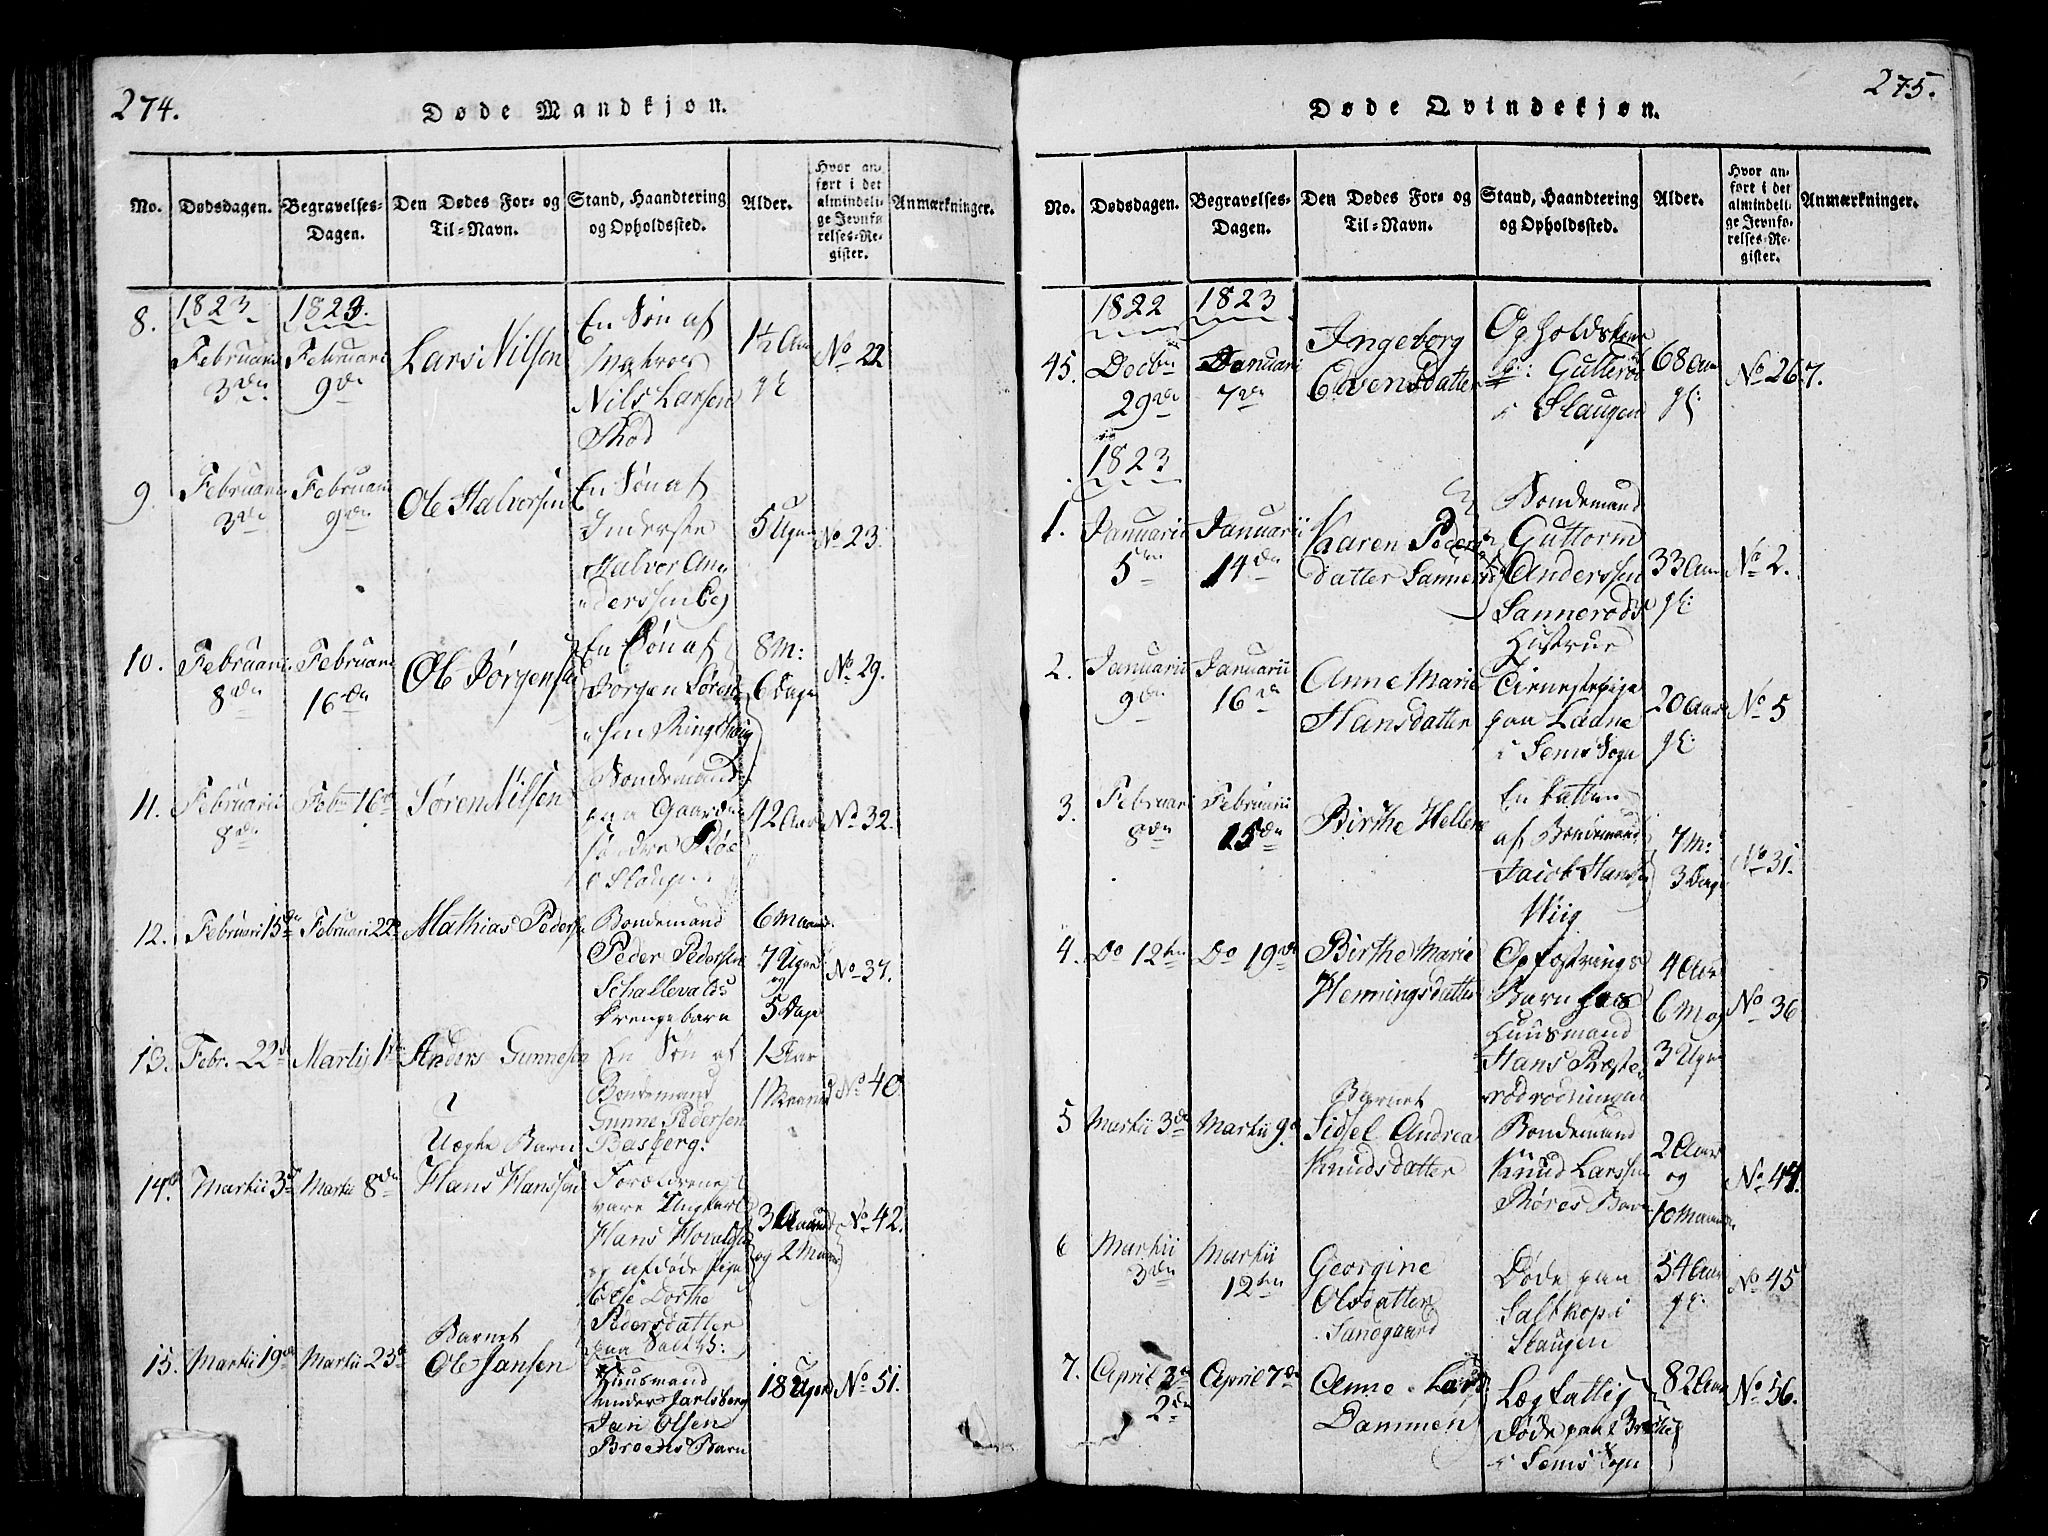 274.
Døde Mandkjøn.
No.
Dødsdagen.
Begravelses-
Dagen.
Den Dødes For- og
Til-Navn.
Stand, Haandtering
og Opholdssted.
Alder.
Hvor an-
ført i det
almindeli-
ge Jevnfø-
relses-Re-
gister.
Anmærkninger.
8.
1823
Februarii
3die
1823.
Februarii
9de
Lars Nilsen
En Søn af
Nils Larsen
Rød
1½ Aar
gl
No 22
9.
Februarii
3die
Februarii
9de
Ole Halvorsen
En Søn af
Inderste
Halvor An-
derssen
5 Uger
No 23.
10.
Februarii
8de
Februarii
16de
Ole Jørgensen
En Søn af
Jørgen Søren-
sen Ringshoug
8 M:
6 Dage
No 29.
11.
Februarii
8de
Febr 16de
Søren Nilsen
Bondemand
paa Gaarden
søndre Røe
i Slaugen
42 Aar
No 32.
12.
Februari 15de
Februari 22de
Mathias Peders
Bondemand
Peder Pedersen
Schallevalds
Drengebarn
6 Maaned
7 Uger
og
5 Dage
No 37.
13.
Febr. 22de
Martii 1ste
Anders Gunnesen
En Søn af
Bondemand
Gunne Pedersen
Basberg.
1 Aar
1 Maaned
No 40
14.
Martii 3de
Martii 8de
Uægte Barn
Hans Hanssen
Forældrene
vare Ungkarl
Hans
og afdøde Pige
Else Dorthe
Pedersdatter
paa
3 Aar
og 2 Maaned
No 42.
15.
Martii 19de
Martii 23de
Barnet
Ole Jansen
Huusmand
under Jarlsberg
Jan Olsen
Broens Barn
18 Uger
No 51.
275.
Døde Qvindekjøn.
No.
Dødsdagen.
Begravelses-
Dagen.
Den Dødes For- og
Til-Navn.
Stand, Haandtering
og Opholdssted.
Alder.
Hvor an-
ført i det
almindeli-
ge Jevnfø-
relses-Re-
gister.
Anmærkninger.
45.
1822
Decbr
29de
1823
Januarii
7de
Ingeborg
Evensdatter
Opholdskone
i Slaugen
68 Aar
gl:
No 267.
1823
1.
Januarii
5te
Januarii
14de
Kaaren Peders
datter Sannerød
Bondemand
Guttorm
Anderssen
Sannerøds
Hustrue
33 Aar
gl:
No 2.
2.
Januarii
9de
Januarii
16de
Anne Marie
Hansdatter
Tienestepige
paa
i Sems Sogn
20 Aar
gl:
No 5
3.
Februarii
8de
Februarii
15de
Birthe Hellene
En Datter
af Bondemand
Jacob Hansen
Wiig
7 M:
3 Dage
No 31.
4.
Do 12te
Do 19de
Birthe Marie
Henningsdatter
Opfostrings
Barn hos
Huusmand
Hans Præste-
rødrødningen
4 Aar
6 M og
3 Uger
No 36
5
Martii 3de
Martii 9de
Barnet
Sidsel Andrea
Knudsdatter
Bondemand
Knud Larssen
Røres Barn
2 Aar
og
10 Maaneder
No 44.
6
Martii
3de
Martii
12te
Georgine
Olsdatter
Sandgaard
Døde paa
Saltkop i
Slaugen
54 Aar
gl:
No 45
7.
April
2de
April 7de
Anne Lars
Dammen
Lægfattig
Døde paa
i Sems Sogn
82 Aar
No 56.